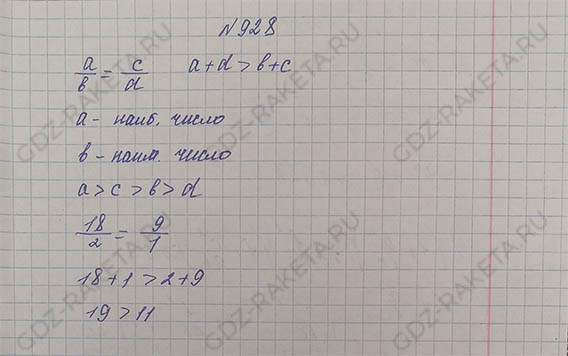 №928
a/в = c/d a+d>в+c
a- наиб. число
в- наим. число
a>c>в>d
18/2 = 9/1
18+1>2+9
19>11
GDZ-RAKETA.RU
GDZ-RAKETA.RU
GDZ-RAKETA.RU
GDZ-RAKETA.RU
GDZ-RAKETA.RU